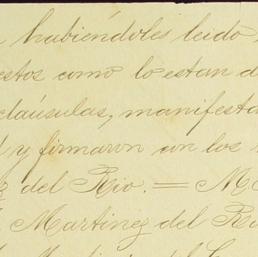 habiéndoles leido
estos como lo estan d
cláusulas, manifesta
y firmaron con los
z del Rio. = M
Martinez del Ri